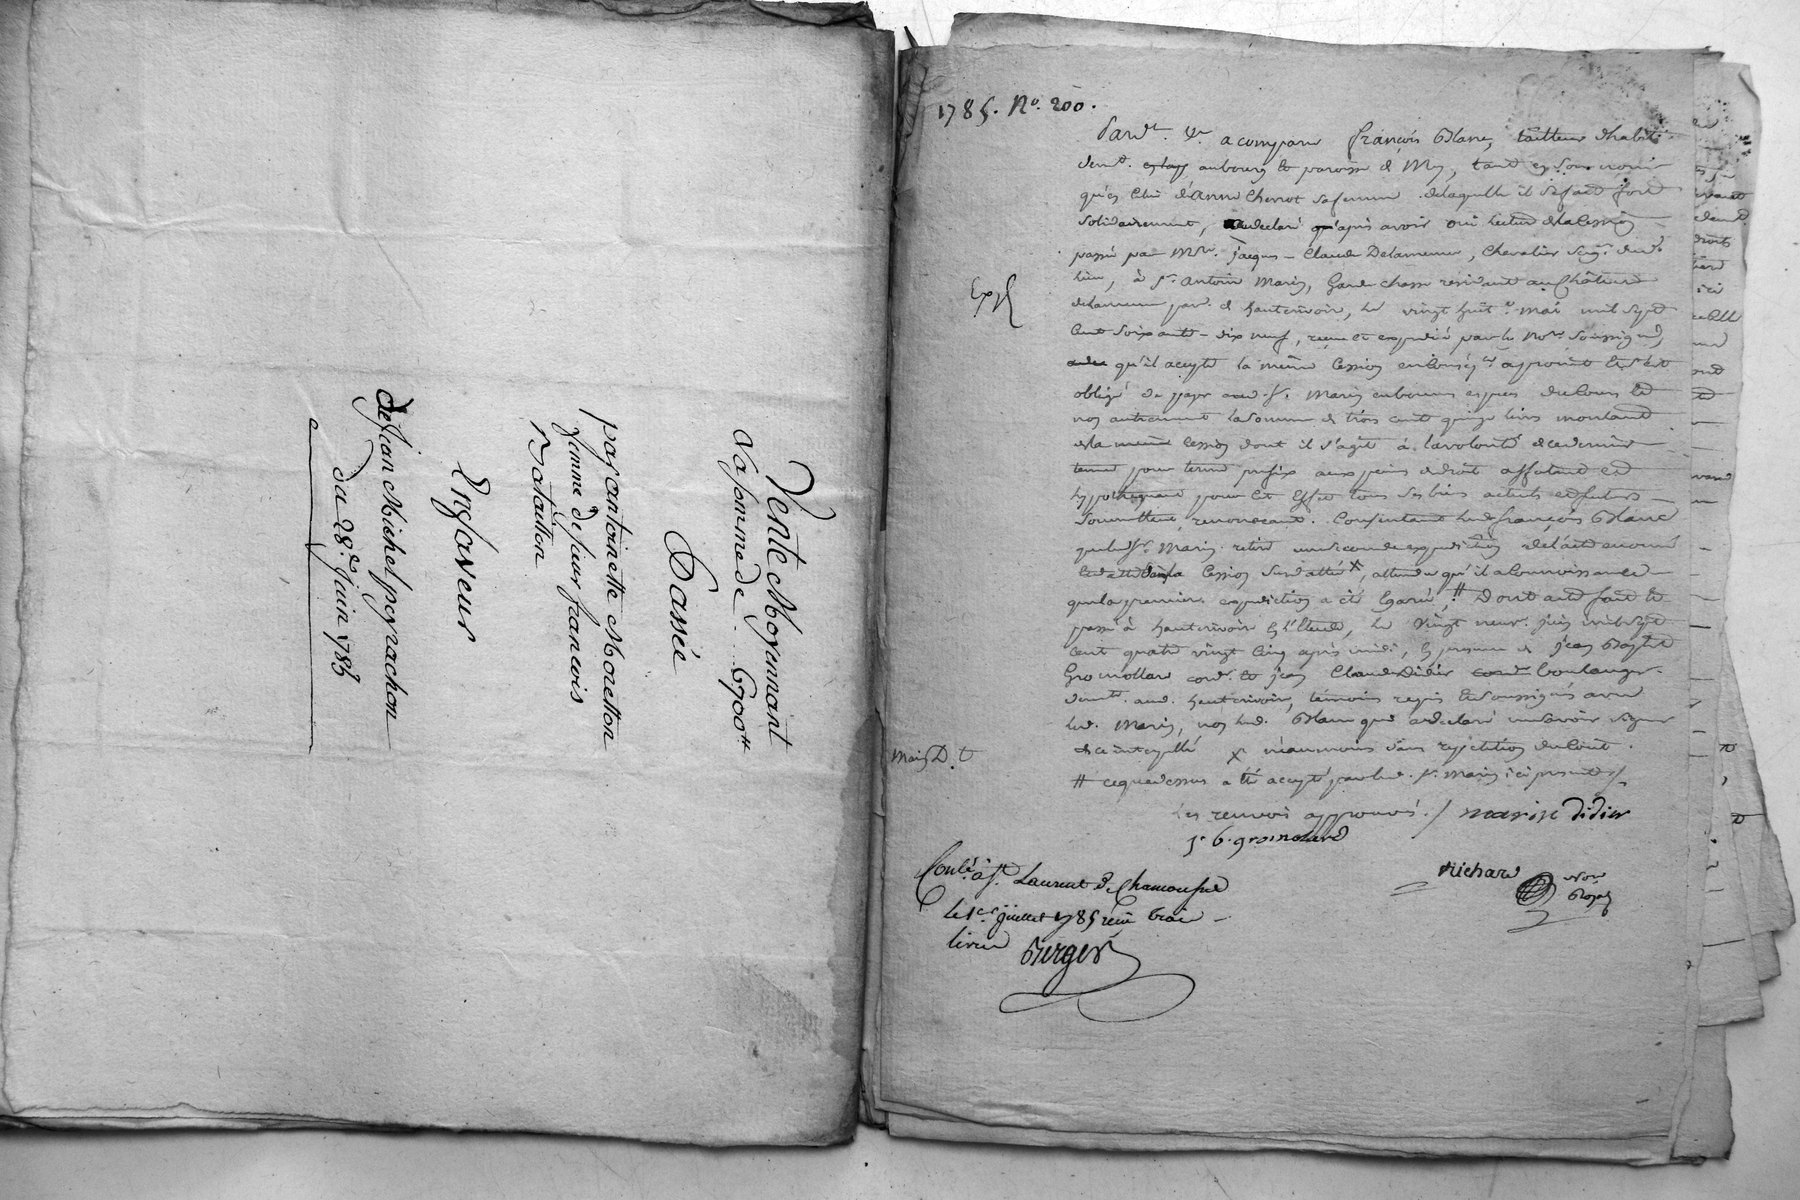 Vente Moyennant
La somme de . . . 6700tt
Passée
par antoinette Moretton
femme de sieur francois
Bataillon
En faveur
de Jean Michel peyrachon
du 28e. juin 1785
1785. No. 200.
Pardt. &r. a comparu françois Blanc, tailleur d'habit
demt. au bourg et paroisse de My, tant en son nom
qu'en celui d'anne Chervot sa femme de laquelle il se fait fort
solidairement, a declaré qu'après avoir oui lecture de la Cession
passée par Mre. jacques-Claude Delamerune, Chevalier Seigr. dud.
lieu, à sr. antoine Marin, Garde chasse résidant au Château
par. d'hauterivoire, le vingt huit mai mil sept
Expé
Cent soixante-dix neuf, reçue et expediée par le Nore. soussigné,
qu'il accepte la même Cession en conséqce. approuvé et s'est
obligé de payer aud. sr. Marin en bonnes espèces du Cours et
non autrement la somme de trois cent quinze livres montant
de la même Cession dont il s'agit à la volonté de ce dernier
terme pour terme prefix aux peines de droit affectant et
hypothéquant pour cet Effet tous ses biens actuels et futurs
soumettant, renonceant. Consentant led. françois Blanc
que led. sr. Marin retire une seconde expedition de l'acte enoncé
dans la Cession susdattée x, attendu qu'il a Connoissance
que la premiere expedition a été Egarée, # Dont acte fait et
passé à hauterivoire En l'Etude, le vingt neuf juin mil sept
cent quatre vingt Cinq après midi, En presence de jean Baptiste
Groinollard cordr. et jean Claude Didier boulanger
demts. aud. hauterivoire, témoins requis et soussignés avec
led. Marin, non led. Blanc qui a declaré ne savoir signer
de ce interpellé x néanmoins sans repetition du Cout.
Marin D. t
# ce que dessus a été accepté par led. sr. Marin ici present /
Les renvois approuvés. / marin Didier
j. b. groinolard
Richard Nore
Royal
Conlé. à st. Laurent de Chamousset
le 1er. juillet 1785 reçu trois
livres Berger